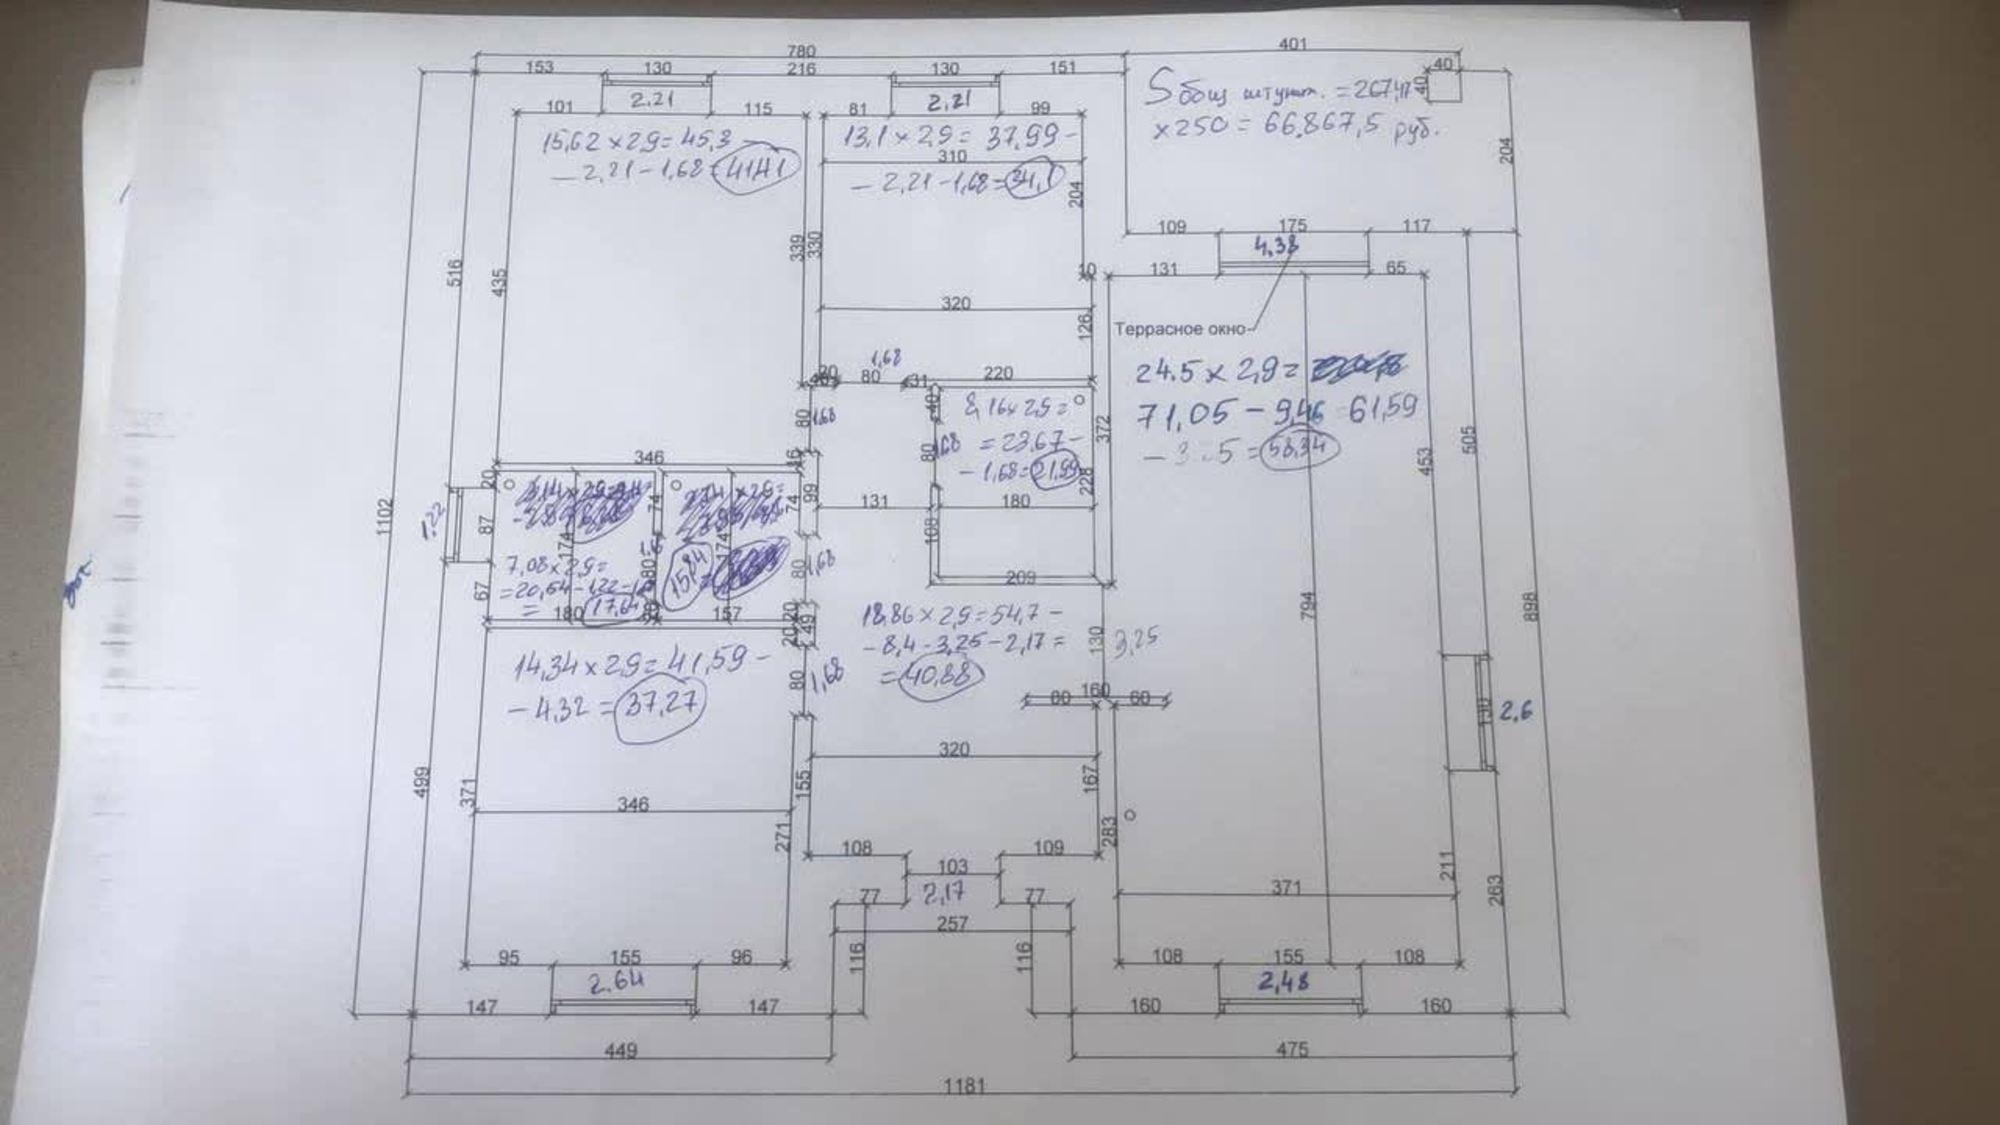 780
401
153
130
216
130
151
40
40
2.21
2.21
101
115
81
99
S общ штукат. = 267,47
x250 = 66.867,5 руб.
15,62 x 2,9 = 45,3 –
– 2,21 – 1,68 = 41,41
13,1 x 2,9 = 37,99 –
310
– 2,21 – 1,68 = 34,1
204
204
109
175
117
4,38
516
435
339
330
10
131
65
320
126
Террасное окно
24.5 x 2,9 =
71,05 – 9,46 = 61,59
= 58,34
1,68
20
80
31
220
80
1,68
40
8,16 x 2,9 =
= 23,67 –
– 1,68 = 21,99
80
228
372
453
505
346
16
20
1102
1,22
87
74
74
99
131
180
174
174
108
7,08 x 2,9 =
= 20,54 – 1,22 –
= 17,64
80
15,84
80
1,68
67
180
157
20
20
49
209
794
898
14,34 x 2,9 = 41,59 –
– 4,32 = 37,27
80
1,68
18,86 x 2,9 = 54,7 –
– 8,4 – 3,25 – 2,17 =
= 40,88
130
3,25
160
60
60
130
2,6
320
499
371
346
155
167
271
283
211
263
108
109
103
2,17
77
77
257
371
116
116
95
155
96
108
155
108
2.64
2,48
147
147
160
160
449
475
1181